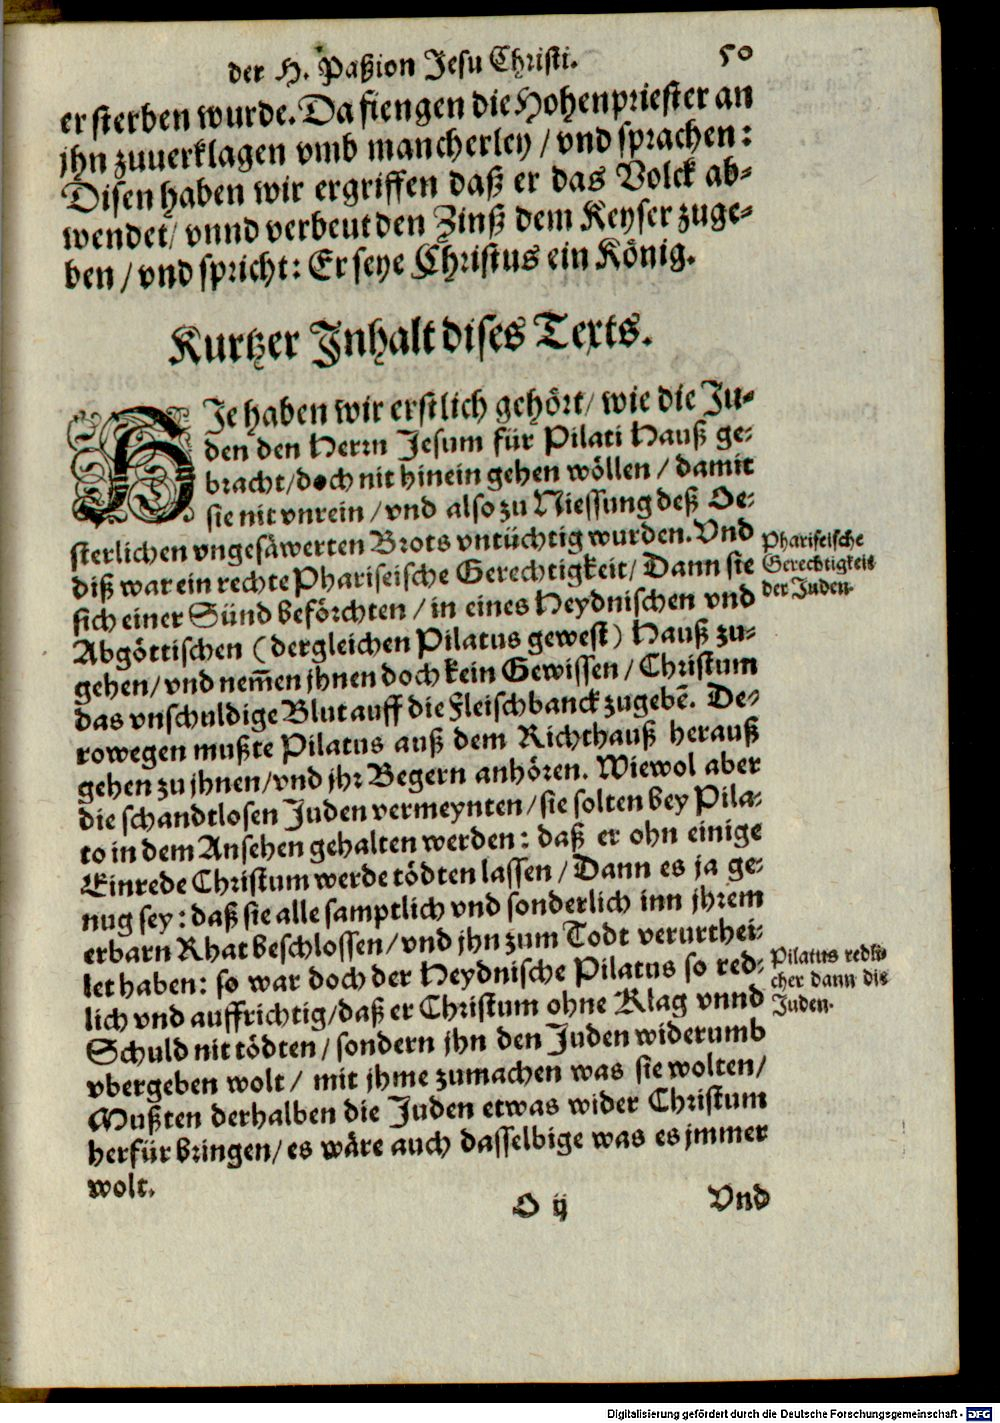 der H. Paßion Jesu Christi. 50
er sterben wurde. Da fiengen die Hohenpriester an
jhn zuuerklagen vmb mancherley / vnd sprachen:
Disen haben wir ergriffen daß er das Volck ab-
wendet / vnnd verbeut den Zinß dem Keyser zuge-
ben / vnd spricht: Er seye Christus ein König.
Kurtzer Jnhalt dises Texts.
HJe haben wir erstlich gehört / wie die Ju-
den den Herrn Jesum für Pilati Hauß ge-
bracht / doch nit hinein gehen wöllen / damit
sie nit vnrein / vnd also zu Niessung deß Oe-
sterlichen vngesäwerten Brots vntüchtig wurden. Vnd
diß war ein rechte Phariseische Gerechtigkeit / Dann sie
sich einer Sünd beförchten / in eines Heydnischen vnd
Abgöttischen (dergleichen Pilatus gewest) Hauß zu-
gehen / vnd nem̃en jhnen doch kein Gewissen / Christum
das vnschuldige Blut auff die Fleischbanck zugebẽ. De-
rowegen mußte Pilatus auß dem Richthauß herauß
gehen zu jhnen / vnd jhr Begern anhören. Wiewol aber
die schandtlosen Juden vermeynten / sie solten bey Pila-
to in dem Ansehen gehalten werden: daß er ohn einige
Einrede Christum werde tödten lassen / Dann es ja ge-
nug sey: daß sie alle samptlich vnd sonderlich inn jhrem
erbarn Rhat beschlossen / vnd jhn zum Todt verurthei-
let haben: so war doch der Heydnische Pilatus so red-
lich vnd auffrichtig / daß er Christum ohne Klag vnnd
Schuld nit tödten / sondern jhn den Juden widerumb
vbergeben wolt / mit jhme zumachen was sie wolten /
Mußten derhalben die Juden etwas wider Christum
herfür bringen / es wäre auch dasselbige was es jmmer
wolt.
Phariseische
Gerechtigkeit
der Juden.
Pilatus redli-
cher dann die
Juden.
O ij Vnd
Digitalisierung gefördert durch die Deutsche Forschungsgemeinschaft - DFG